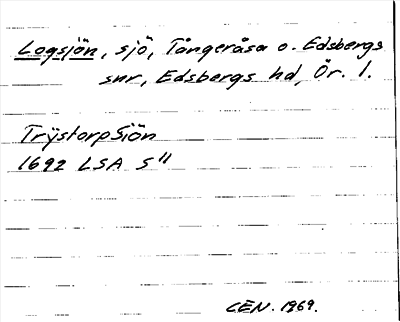 Logsjön, sjö, Tångeråsa o. Edsbergs
snr, Edsbergs hd, Ör. l.
Trÿstorp Siön
1692 LSA S 11
CEN. 1969.